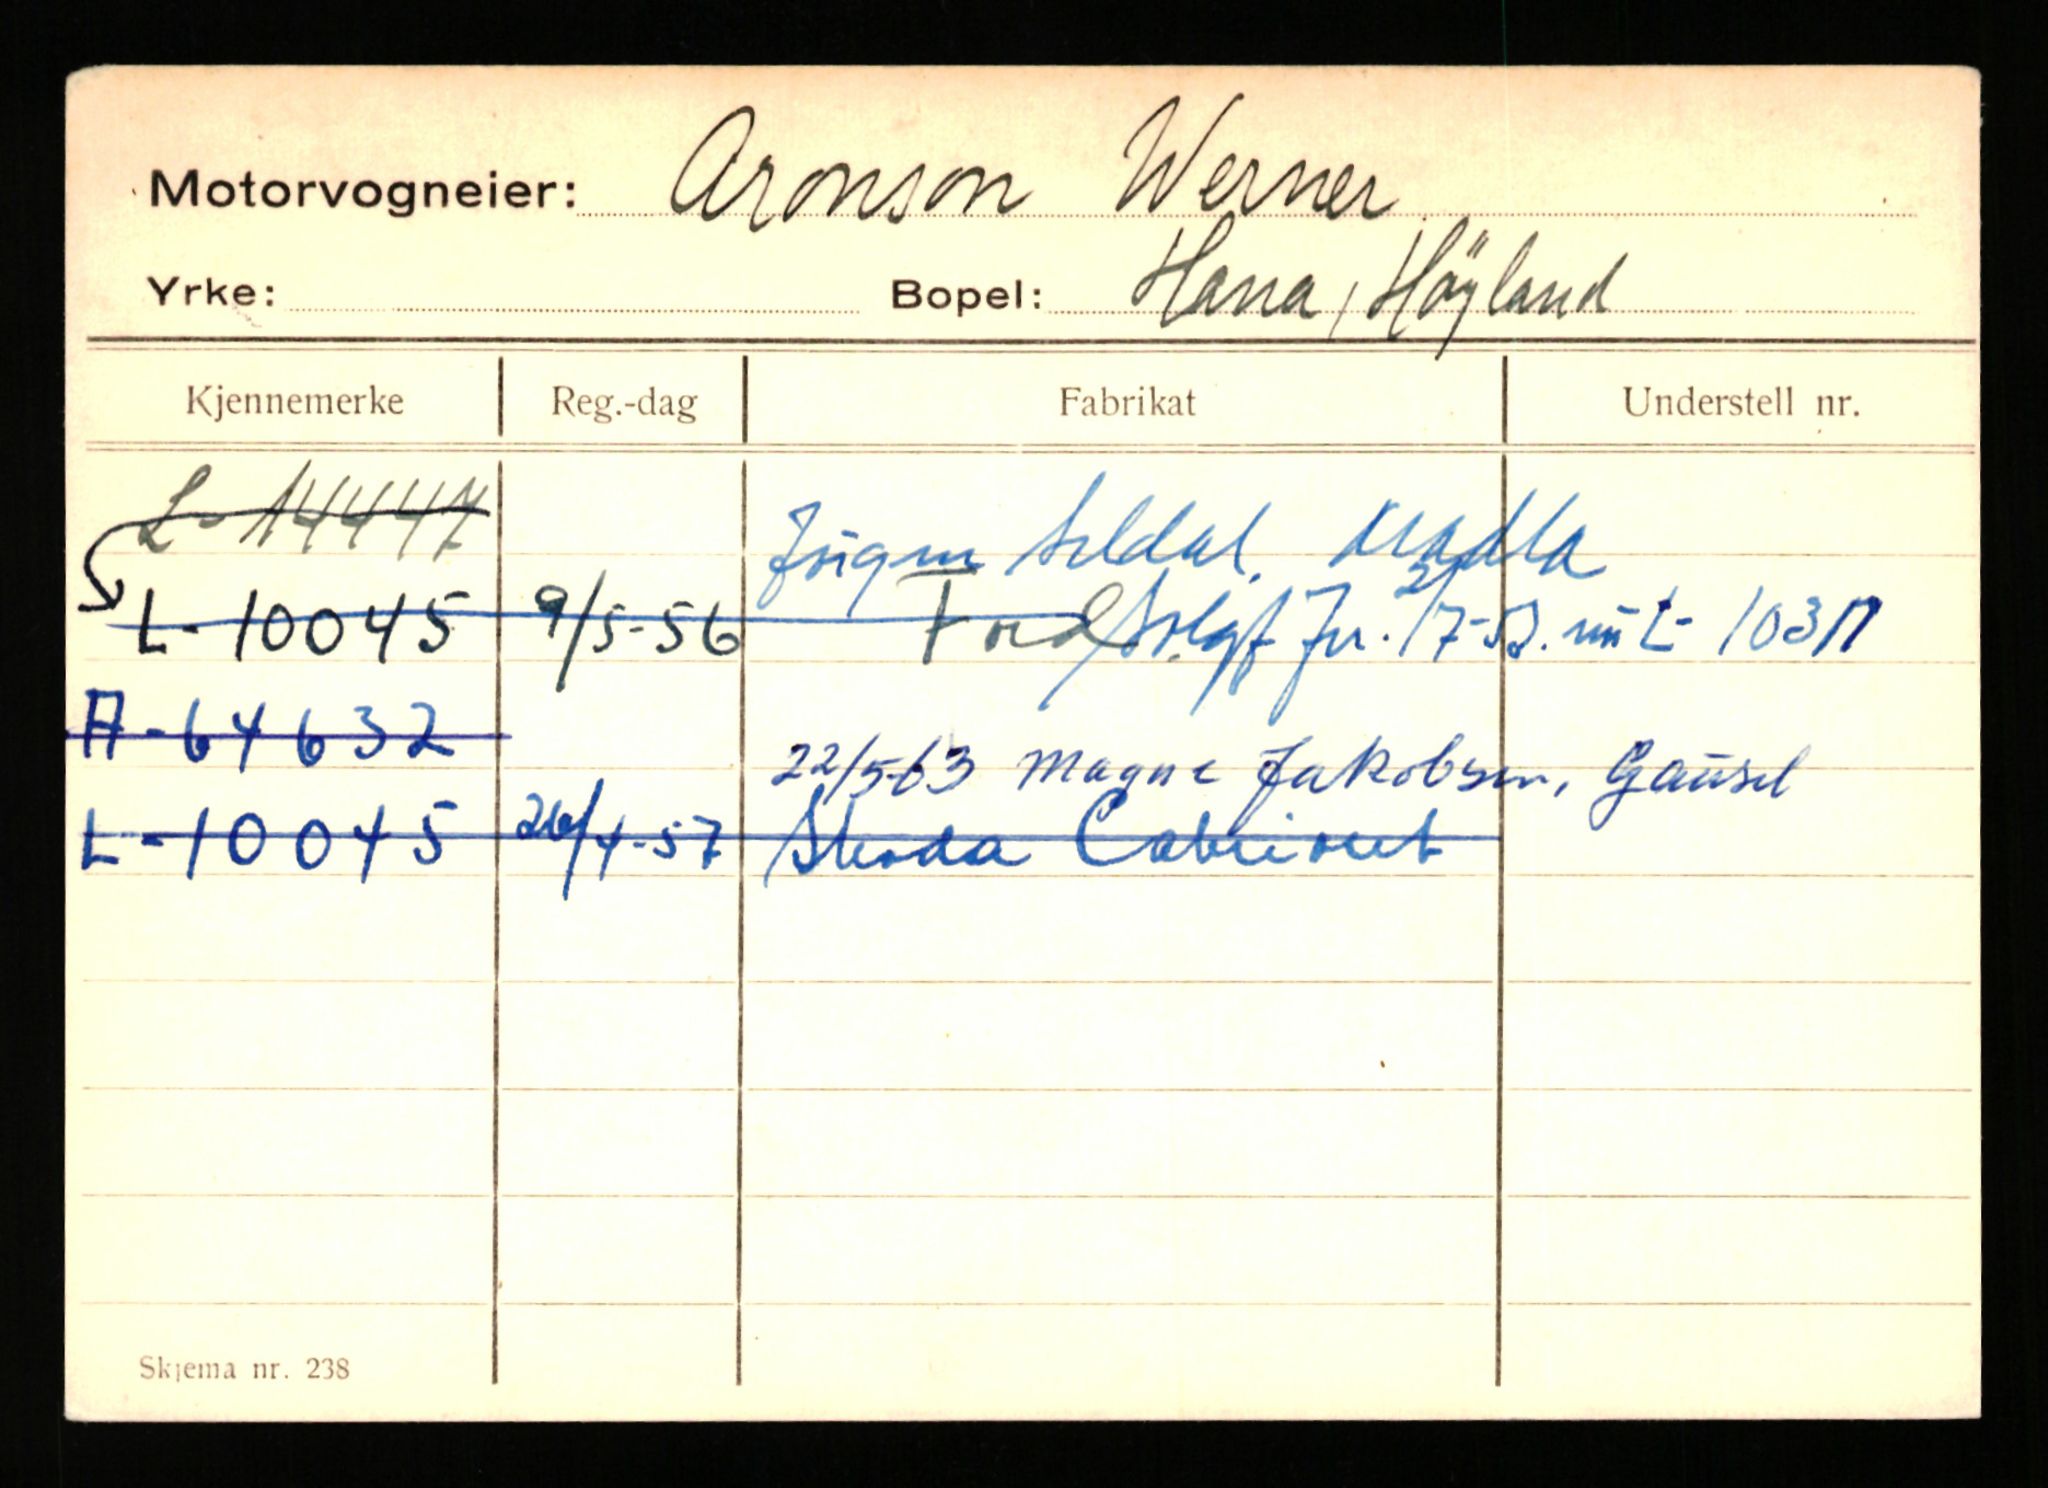 Motorvogneier: Aronson Werner
Yrke: Bopel: Hana, Høyland
Kjennemerke Reg.-dag Fabrikat Understell nr.
L-14447 Seldal, Madla
L-10045 9/5-56 Ford Solgt 2/7-5 L- 10317
A-64632
22/5-63 Magne Jakobsen, Gausel
L-10045 26/4-57 Skoda Cabriout
Skjema nr. 238